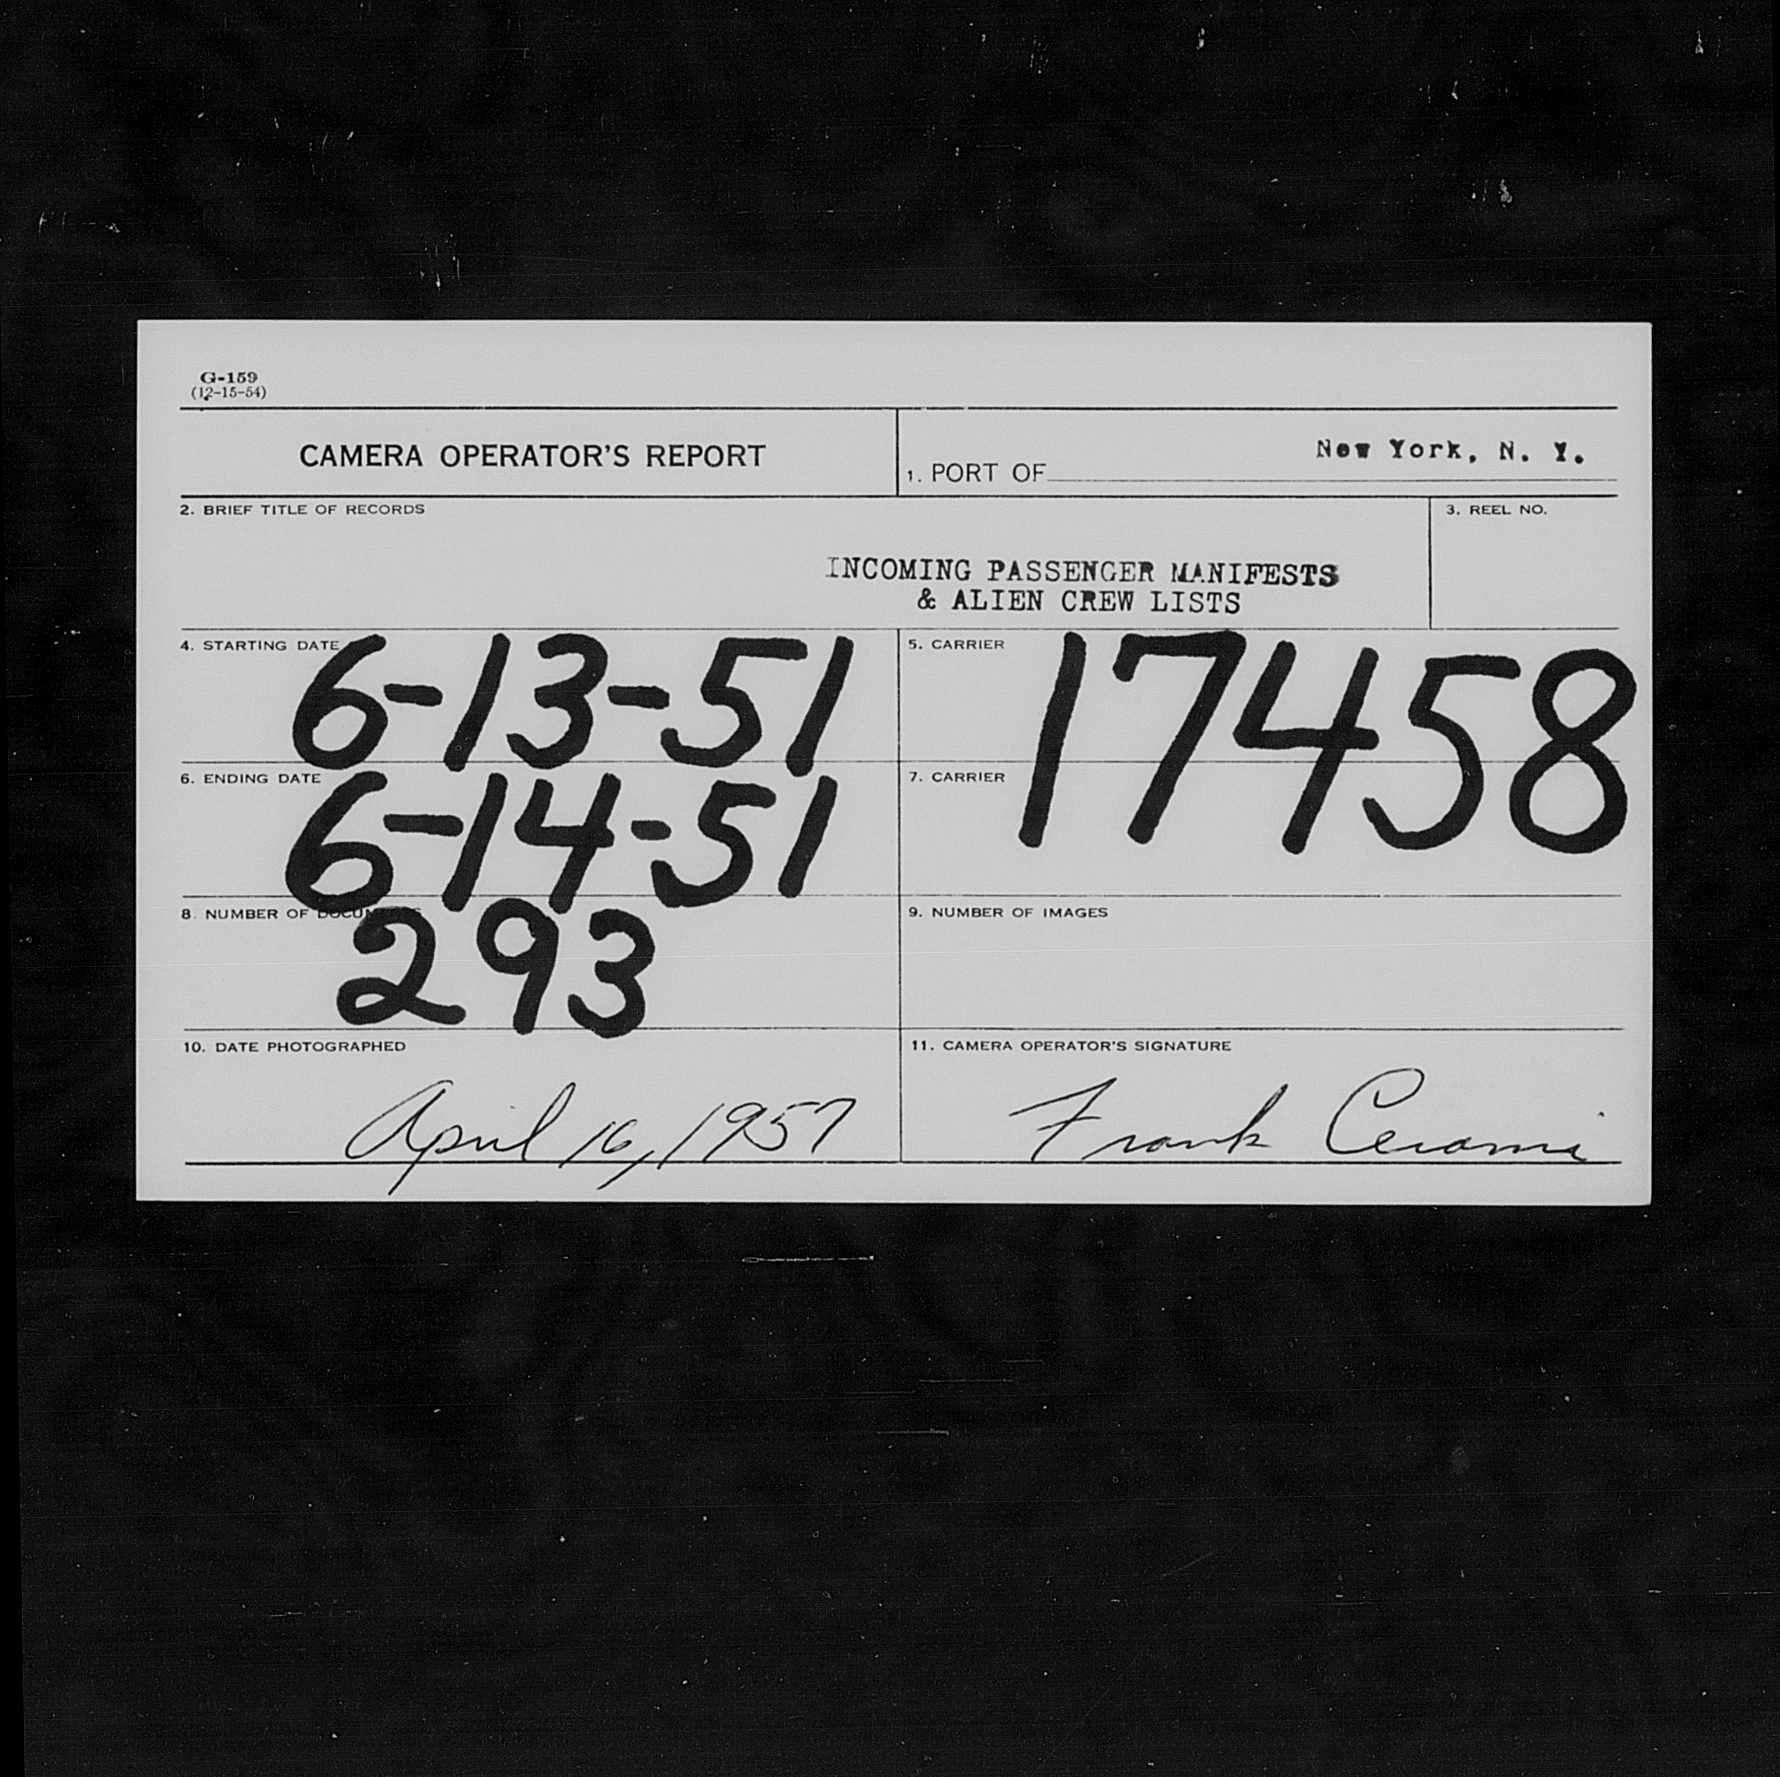 G-159
(12-15-54)
CAMERA OPERATOR'S REPORT
1. PORT OF New York, N. Y.
2. BRIEF TITLE OF RECORDS
INCOMING PASSENGER MANIFESTS
& ALIEN CREW LISTS
3. REEL NO.
4. STARTING DATE 6-13-51
5. CARRIER 17458
6. ENDING DATE 6-14-51
7. CARRIER
8. NUMBER OF DOCUMENTS 293
9. NUMBER OF IMAGES
10. DATE PHOTOGRAPHED
April 16, 1957
11. CAMERA OPERATOR'S SIGNATURE
Frank Cerami